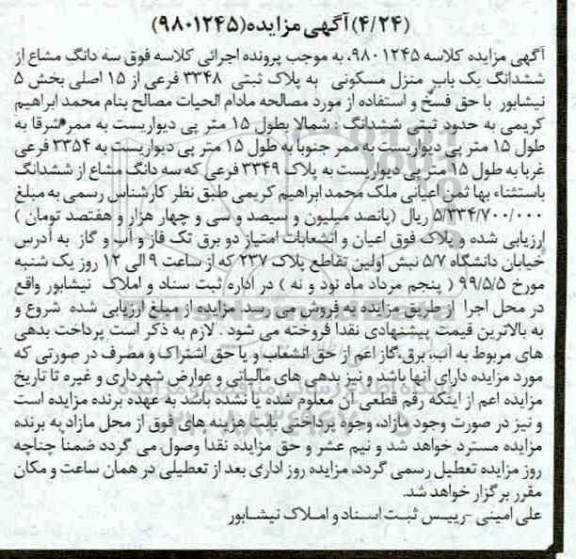 (۴/۲۴) آگهی مزایده (۹۸۰۱۲۴۵)
آگهی مزایده کلاسه ۹۸۰۱۲۴۵، به موجب پرونده اجرائی کلاسه فوق سه دانگ مشاع از
ششدانگ یک باب منزل مسکونی به پلاک ثبتی ۳۳۴۸ فرعی از ۱۵ اصلی بخش ۵
نیشابور با حق فسخ و استفاده از مورد مصالحه مادام الحیات مصالح بنام محمد ابراهیم
کریمی به حدود ثبتی ششدانگ : شمالا بطول ۱۵ متر پی دیواریست به ممر شرقا به
طول ۱۵ متر پی دیواریست به ممر جنوبا به طول ۱۵ متر پی دیواریست به ۳۳۵۴ فرعی
غربا به طول ۱۵ متر پی دیواریست به پلاک ۳۳۴۹ فرعی که سه دانگ مشاع از ششدانگ
باستثناء بها ثمن اعیانی ملک محمد ابراهیم کریمی طبق نظر کارشناس رسمی به مبلغ
۵/۳۳۴/۷۰۰/۰۰۰ ریال (پانصد میلیون و سیصد و سی و چهار هزار و هفتصد تومان )
ارزیابی شده و پلاک فوق اعیان و انشعابات امتیاز دو برق تک فاز و آب و گاز به آدرس
خیابان دانشگاه ۵/۷ نبش اولین تقاطع پلاک ۲۳۷ که از ساعت ۹ الی ۱۲ روز یک شنبه
مورخ ۹۹/۵/۵ ( پنجم مرداد ماه نود و نه ) در اداره ثبت سناد و املاک نیشابور واقع
در محل اجرا از طریق مزایده به فروش می رسد. مزایده از مبلغ ارزیابی شده شروع و
به بالاترین قیمت پیشنهادی نقدا فروخته می شود . لازم به ذکر است پرداخت بدهی
های مربوط به آب، برق، گاز اعم از حق انشعاب و یا حق اشتراک و مصرف در صورتی که
مورد مزایده دارای آنها باشد و نیز بدهی های مالیاتی و عوارض شهرداری و غیره تا تاریخ
مزایده اعم از اینکه رقم قطعی آن معلوم شده یا نشده باشد به عهده برنده مزایده است
و نیز در صورت وجود مازاد، وجوه پرداختی بابت هزینه های فوق از محل مازاد به برنده
مزایده مسترد خواهد شد و نیم عشر و حق مزایده نقدا وصول می گردد ضمنا چناچه
روز مزایده تعطیل رسمی گردد، مزایده روز اداری بعد از تعطیلی در همان ساعت و مکان
مقرر برگزار خواهد شد.
علی امینی -رییس ثبت اسناد و املاک نیشابور